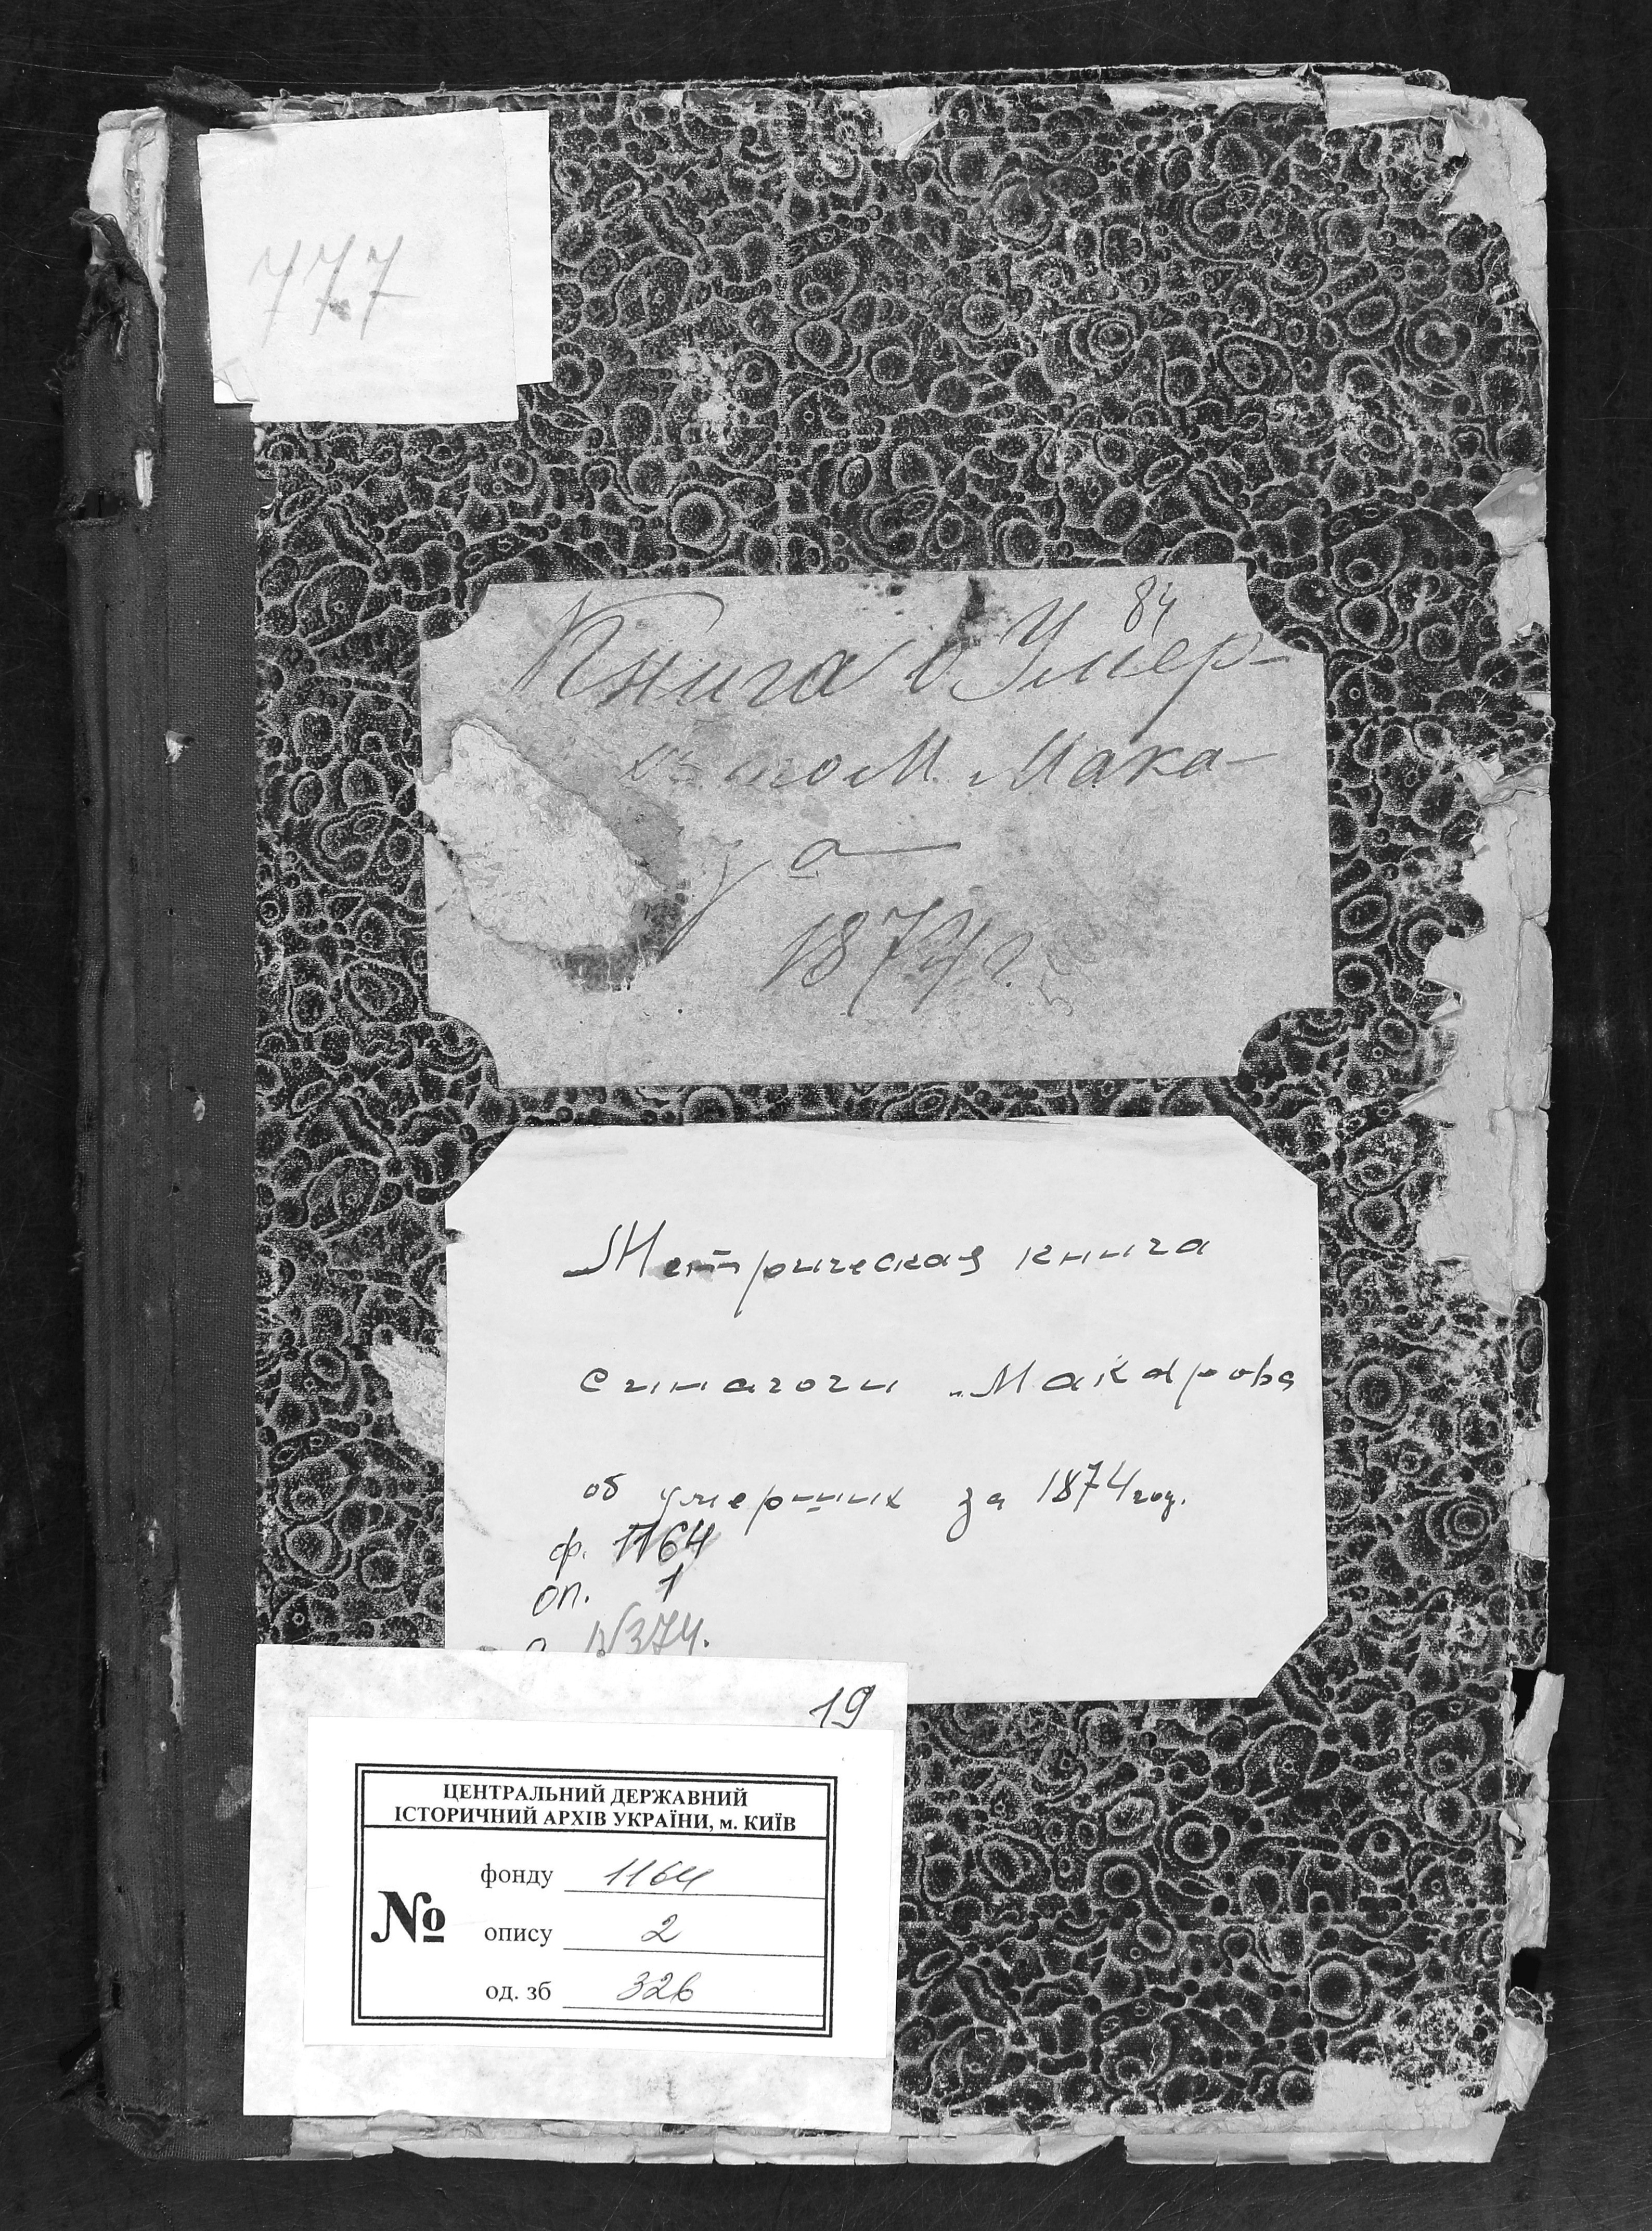 777
84
Книга о Умер-
М. Мака-
за
1874 г.
Метрическая книга
синагоги „Макарова
об умерших за 1874 год.
ф. 1164
оп. 1
N374.
19
ЦЕНТРАЛЬНИЙ ДЕРЖАВНИЙ
ІСТОРИЧНИЙ АРХІВ УКРАЇНИ, м. КИЇВ
№
фонду 1164
опису 2
од. зб 326